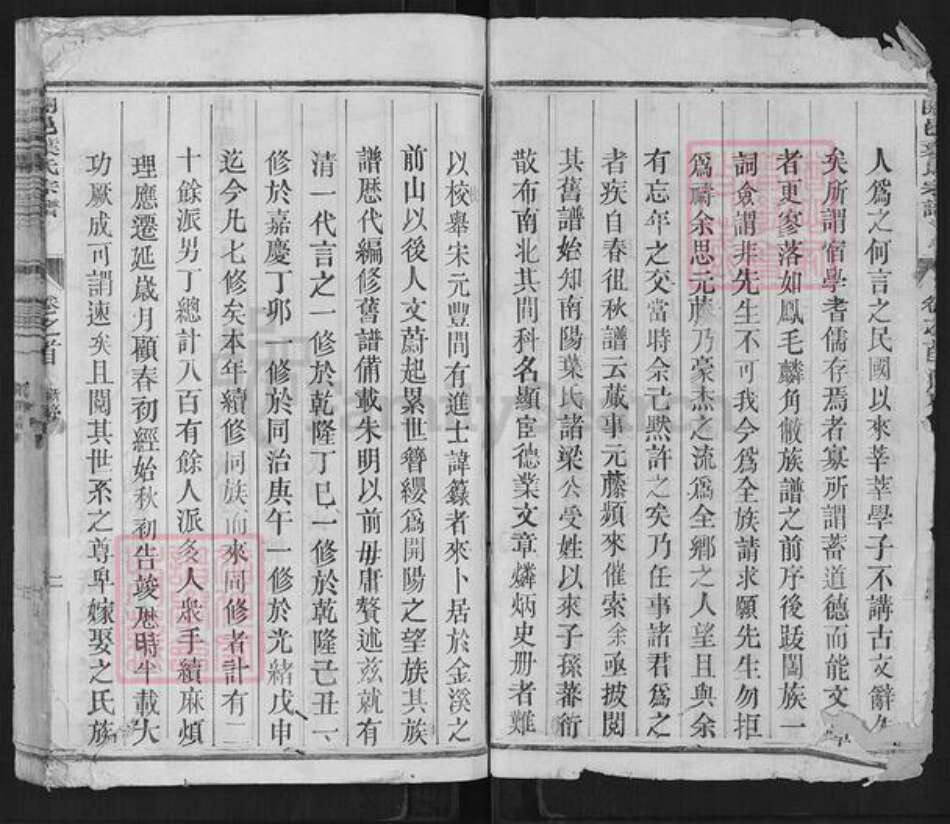 人爲之何言之民國以來莘莘學子不講古文辭久
矣所謂宿學者儒存焉者寡所謂蓄道德而能文章
者更寥落如鳳毛麟角敝族譜之前序後跋闔族一
詞僉謂非先生不可我今爲全族請求願先生勿拒
爲禱余思元藤乃豪杰之流爲全鄉之人望且與余
有忘年之交當時余已默許之矣乃任事諸君爲之
者疾自春徂秋譜云蕆事元藤頻來催索余亟披閱
其舊譜始知南陽葉氏諸梁公受姓以來子孫蕃衍
散布南北其間科名顯宦德業文章燐炳史册者難
以校舉宋元豐間有進士諱籙者來卜居於金溪之
前山以後人文蔚起累世簪纓爲開陽之望族其族
譜歷代編修舊譜備載朱明以前毋庸贅述茲就有
清一代言之一修於乾隆丁巳一修於乾隆己丑一
修於嘉慶丁卯一修於同治庚午一修於光緒戊申
迄今凡七修矣本年續修同族而來同修者計有二
十餘派男丁總計八百有餘人派多人衆手續麻煩
理應遷延歲月顧春初經始秋初告竣歷時半載大
功厥成可謂速矣且閱其世系之尊卑嫁娶之氏族
邑葉氏宗譜
卷之首
新序
二